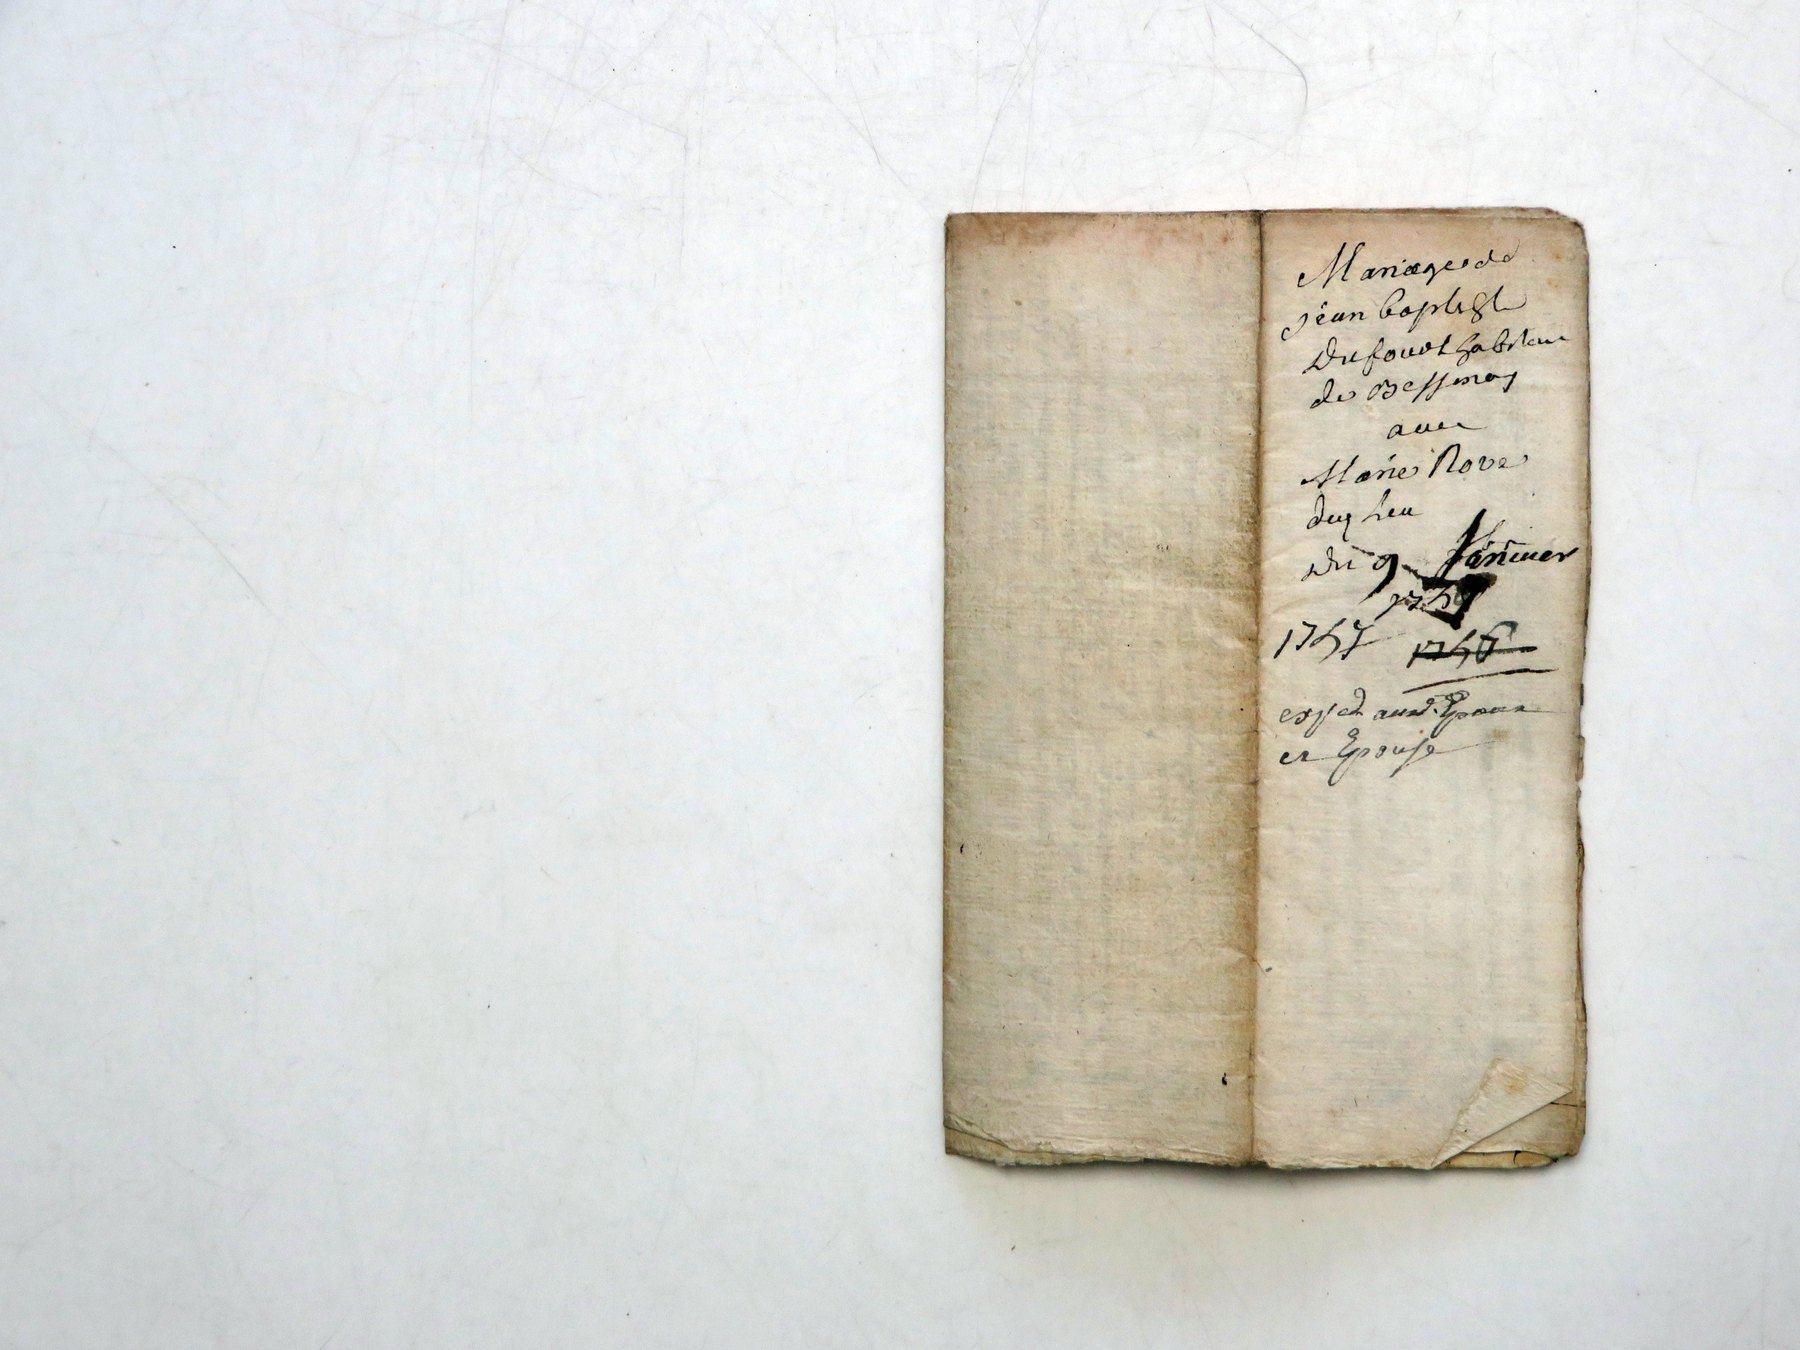 Mariage de
jean baptist
Dufour habitan
de Bessenay
avec
Marie Rove
dud lieu
Du 9 Janvier
1747 1746
exped aux d. Epoux
et Epouse